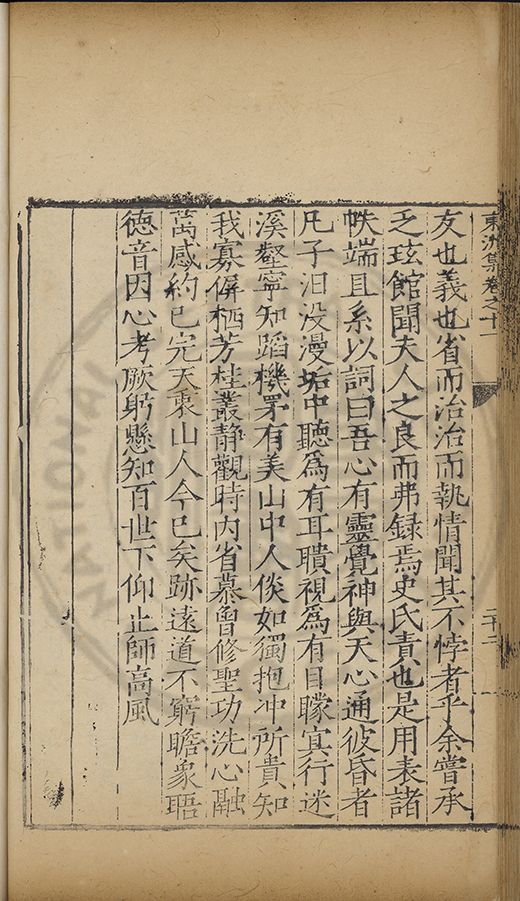 東洲集卷之十一
二十二
友也義也省而治治而執情聞其不悖者乎余嘗承
乏玹館聞夫人之良而弗録焉史氏責也是用表諸
帙端且系以詞曰吾心有靈覺神與天心通彼昏者
凡子汨没漫垢中聽為有耳聵視為有目矇寘行迷
溪壑寧知蹈機罘有美山中人倐如獨抱冲所貴知
我寡僻栖芳桂叢靜觀時内省慕曾修聖功洗心融
萬感約已完天衷山人今已矣跡遠道不窮瞻象聆
德音因心考厥躬懸知百世下仰止師高風